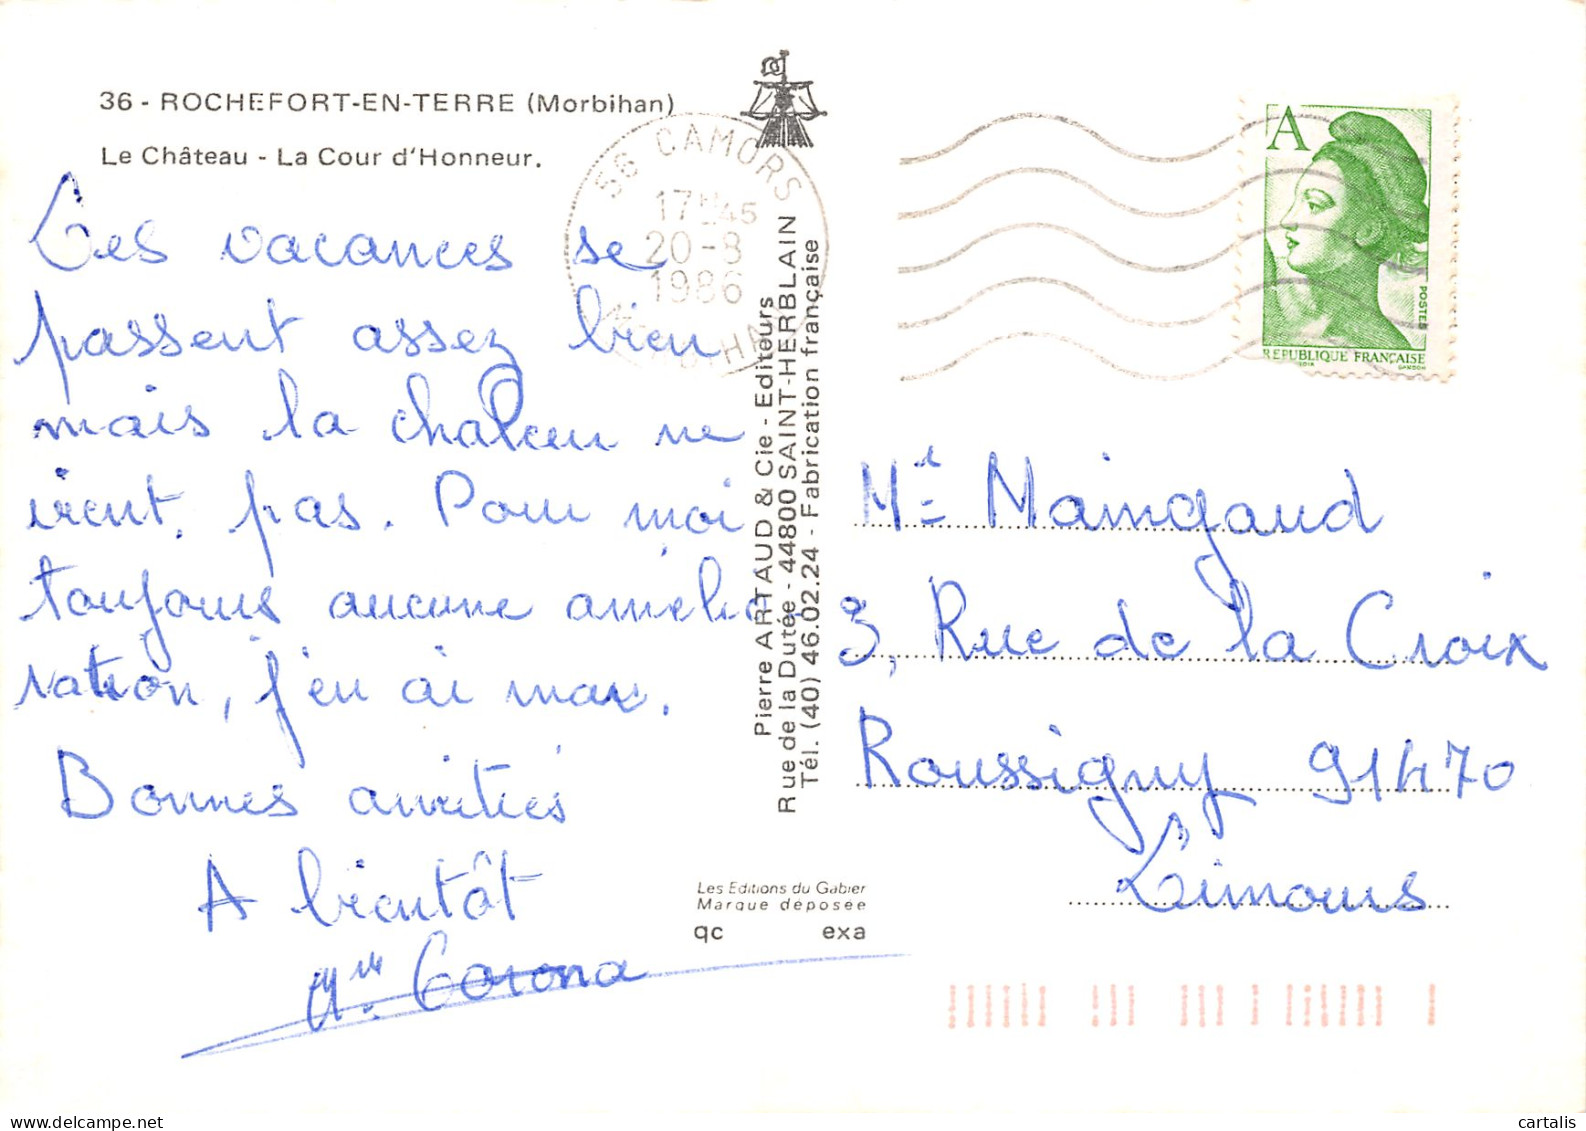 36 - ROCHEFORT-EN-TERRE (Morbihan)
Le Château - La Cour d'Honneur.
Les vacances se
passent assez bien
mais la chaleur ne
vient pas. Pour moi
toujours aucune amélio-
ration, j'en ai marre.
Bonnes amitiés
A bientôt
Mlle. Corona
56 CAMORS
17H45
20-8
1986
MORBIHAN
Pierre ARTAUD & Cie - Editeurs
Rue de la Dutée - 44800 SAINT-HERBLAIN
Tél. (40) 46.02.24 - Fabrication française
Les Editions du Gabier
Marque déposée
qc exa
A
POSTES
RÉPUBLIQUE FRANÇAISE
GANDON
Maingaud
3, Rue de la Croix
Roussigny 91470
Limours
cartalis
delcampe.net